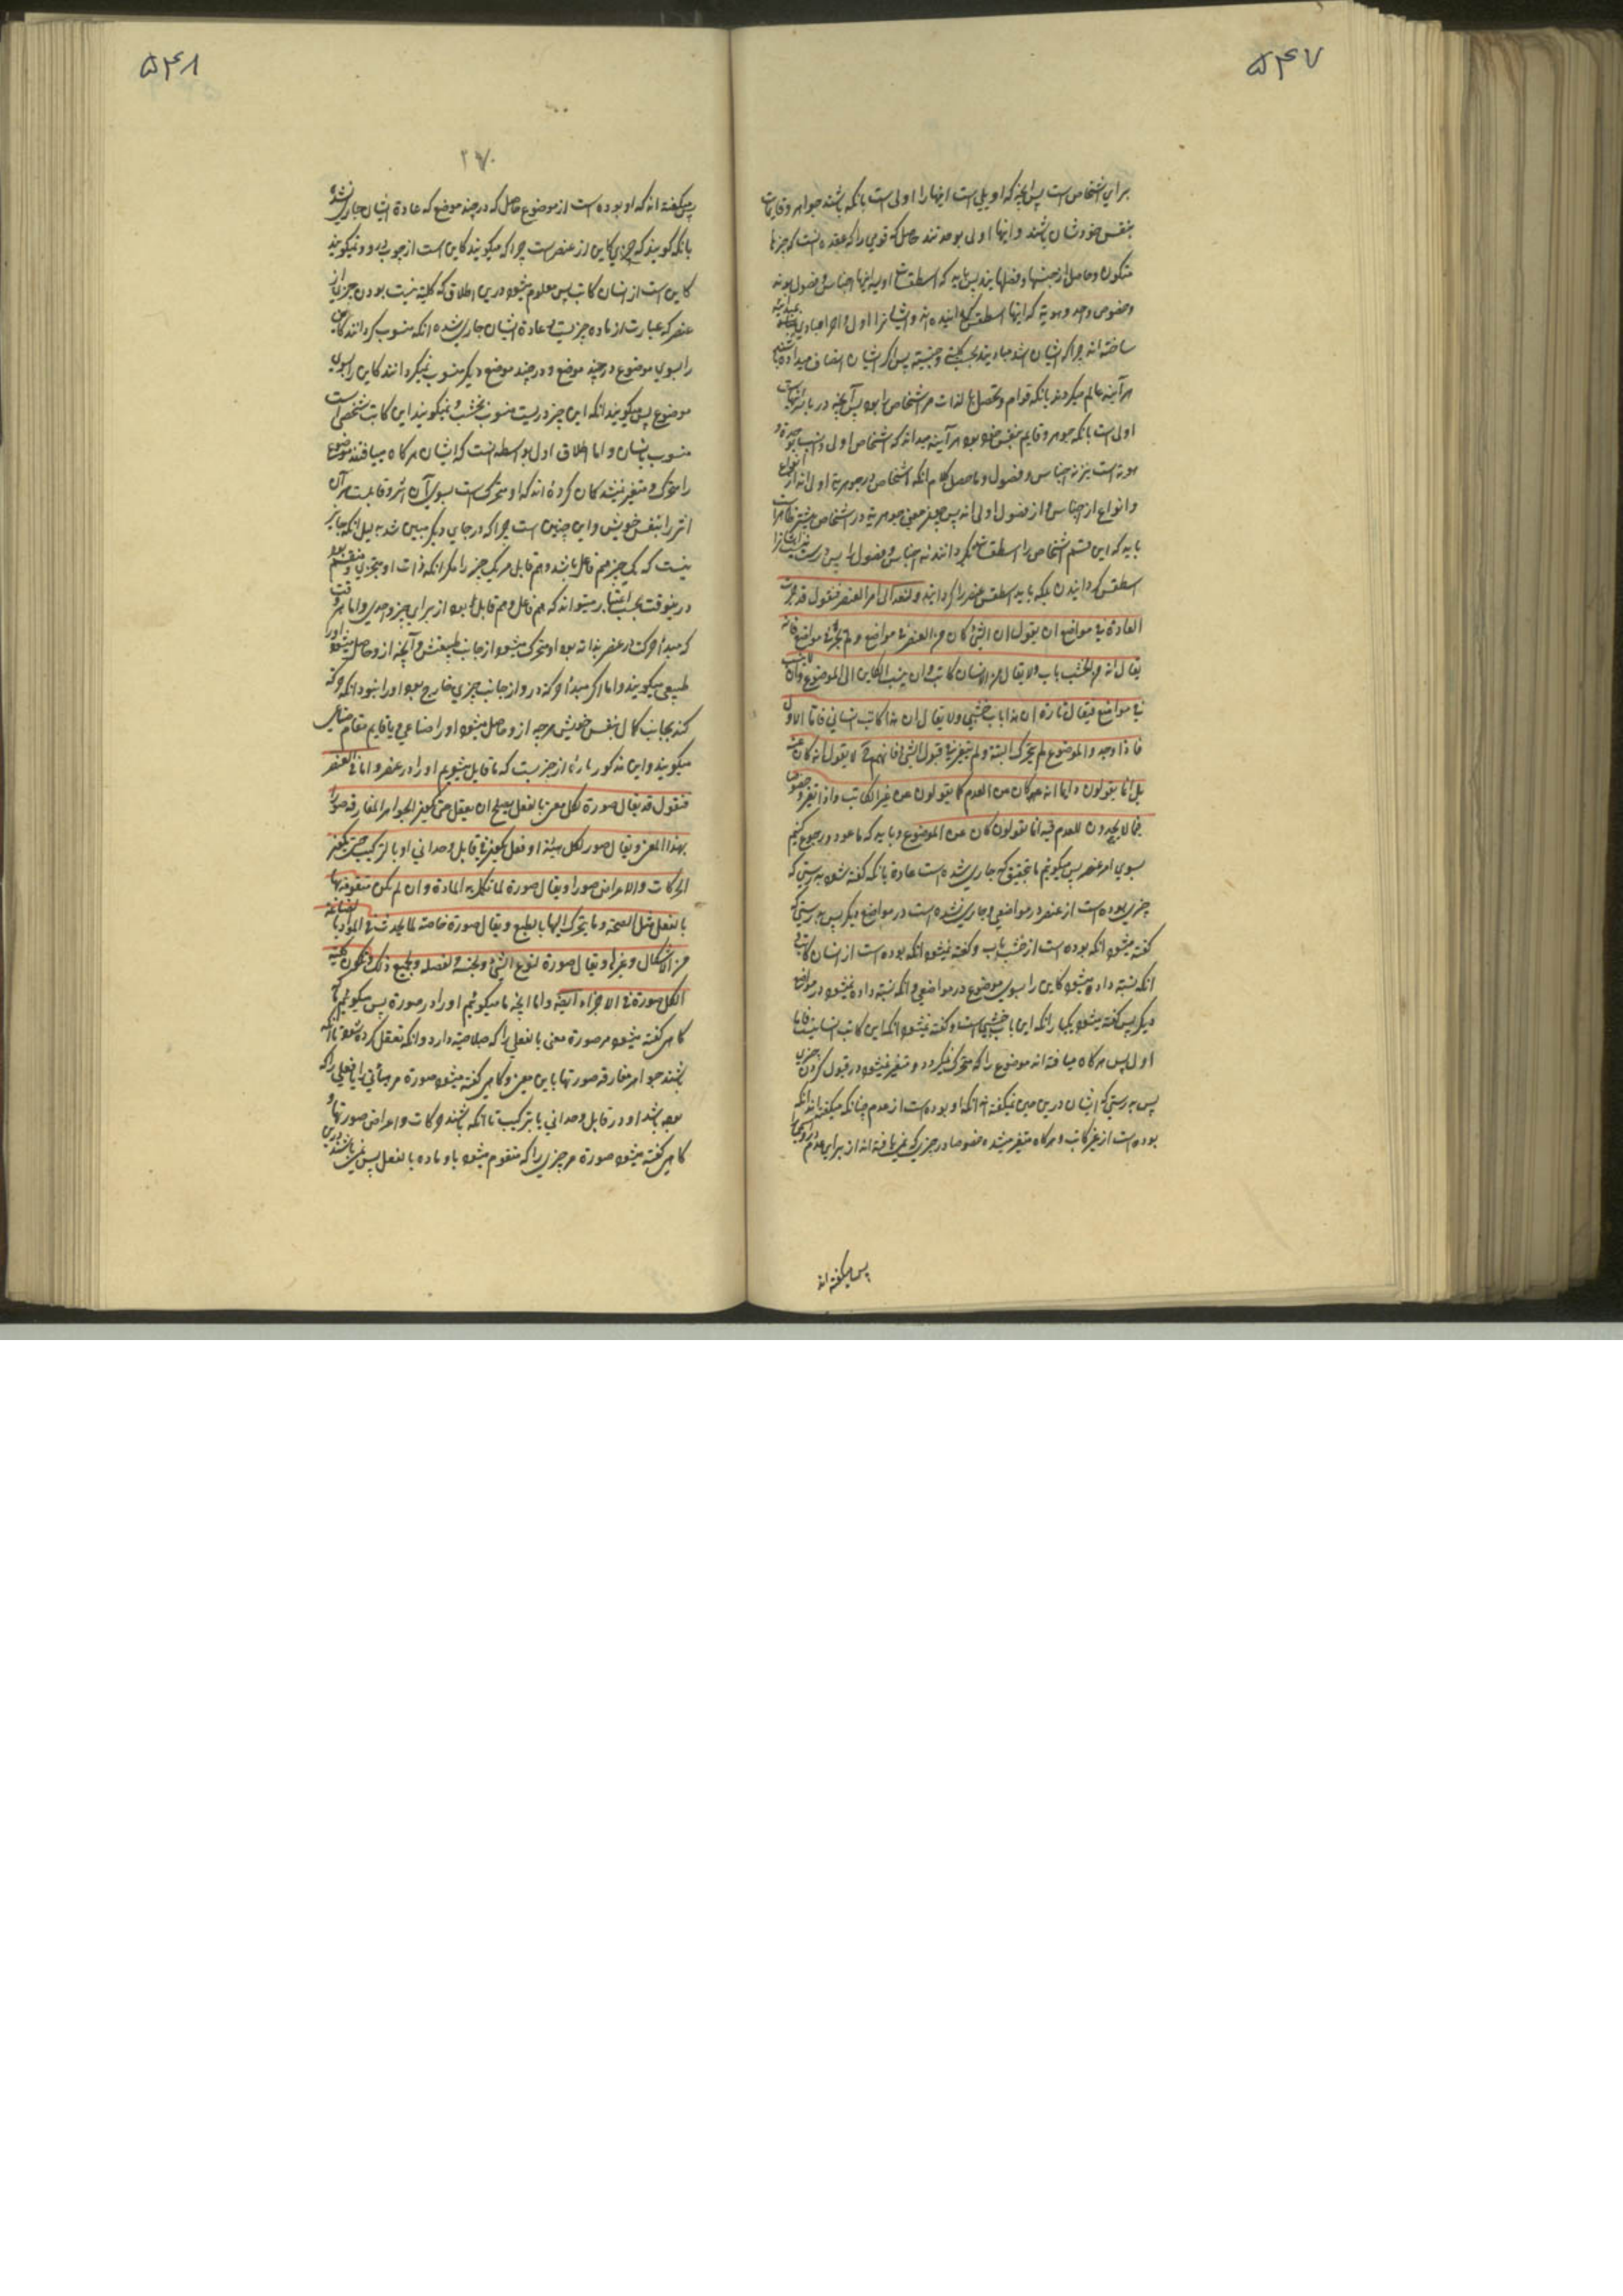 ۵۴۷
برای اشخاص است پس آنچه که او یلی است اینها را اولی است بانکه باشند جواهر و قایمات
بنفس خودشان باشند و اینها اولی بوحدتند حاصل که قومی را که عقیده است که چیزها
متکون و حاصل از جنسها و فصلهایند پس باید که اسطقسات اولیه اینها اجناس و فصول بوند
وخصوص واحد و هویة که اینها اسطقس
ساخته اند چرا که ایشان اشد مبادیند بحسب کلیة و جنسیة پس اگر ایشان انصاف میدادند
هر آینه عالم میکردند بانکه قوام و تحصل بالذات مر اشخاص را بود پس آنچه در
اولی است بانکه جوهر و قایم بنفس خود بود هر آینه میدانند که اشخاص اولی
هویة است نیز نه اجناس و فصول و ماحصل کلام انکه اشخاص در جوهریة اولی اند از انواع
و انواع از اجناس و از فصول اولی اند پس هرگاه معنی جوهریة در اشخاص بیشتر
باید که این قسم اشخاص را اسطقسات بگردانند نه اجناس و فصول را پس درست نیست اینها را
اسطقس گردانیدن بلکه باید اسطقس عنصر را گردانید ولنعد الی امر العنصر فنقول قد جرت
العادة فی مواضع ان یقول ان الشئ کان من العنصر فی مواضع ولم یجر فی مواضع فانه
یقال انه من الخشب باب ولا یقال من الانسان کاتب وان ینسب الکاین الی الموضوع وان لا ینسب
فی مواضع فیقال تارة ان هذا باب خشبی ولا یقال ان هذا کاتب انسانی فاما الاول
فاذا وجدوا الموضوع لم یتحرک البتة ولم یتغیر فی قبول الشئ فانهم ح لا یقولون انه کان عنه
بل انما یقولون دایما انه کان من العدم کما یقولون من غیر الکاتب واذا تغیر وخصوصا
فیما لا یجدون للعدم فیه انما یقولون کان عن الموضوع و باید که ما عود و رجوع کنیم
بسوی امر عنصر پس میگوئیم ما بتحقیق که جاری شده است عادة بانکه گفته شود بدرستی که
چیزی بوده است از عنصر در مواضعی و جاری نشده است در مواضع دیگر پس بدرستی که
گفته میشود انکه بوده است از خشب باب و گفته نمیشود انکه بوده است از انسان کاتب و
انکه نسبة داده میشود کاین را بسوی موضوع در مواضعی و انکه نسبة داده نمیشود در مواضع
دیگر پس گفته میشود یکبار انکه این باب خشبی است و گفته نمیشود انکه این کاتب انسانیست فاما
اول پس هرگاه میافته اند موضوع را که متحرک نمیگردد و متغیر نمیشود در قبول کردن چیزی
پس بدرستی که ایشان درین حین نمیگفته اند انکه او بوده است از عدم چنانکه میگفته اند انکه
بوده است از غیر کاتب و هرگاه متغیر میشده خصوصا در چیزی که نمی یافته اند از برای عدم
پس میگفته اند
۵۴۸
۲۷۰
پس میگفته اند که او بوده است از موضوع حاصل که در چند موضع که عادة ایشان جاری شده
بانکه گویند که چیزی کاین از عنصر است چرا که میگویند کاین است از چوب در و نمیگویند
کاین است از انسان کاتب پس معلوم میشود درین اطلاق که کلیة نیست بودن چیزی از
عنصر که عبارت از ماده چیز است و عادة ایشان جاری شده انکه منسوب گردانند کاین
را بسوی موضوع در چند موضع و در چند موضع دیگر منسوب نمیگردانند کاین را بسوی
موضوع پس میگویند انکه این چیز دریست منسوب بخشب و نمیگویند این کاتب شخصی است
منسوب بانسان و اما اطلاق اول بواسطه انست که ایشان هرگاه میافتند موضوع
را متحرک و متغیر نیشد گمان کرده اند که او متحرک است بسوی آن اثر و قابلست مر آن
اثر را بنفس خویش و این چنین است چرا که در جای دیگر مبین شد بدلیل انکه جایز
نیست که یک چیز هم فاعل باشد و هم قابل مر یک چیز را مگر انکه ذات او متجزی و منقسم بود
درینوقت بحسب اعتبار میتواند که هم فاعل و هم قابل بود از برای چیز واحدی و اما هر وقت
که مبدأ حرکت در عنصر بذاته بود او متحرک میشود از جانب طبیعتش و آنچه از او حاصل میشود او را
طبیعی میگویند و اما اگر مبدأ حرکة در و از جانب چیزی خارج بود او را نبود انکه حرکة
کند بجانب کمال بنفس خویش هرچه از و حاصل میشود او را صناعی و یا قایم مقام صناعی
میگویند و این مذکور ما از چیزیست که ما قایل میشویم او را در عنصر و اما فی العنصر
فنقول قد یقال صورة لکل معنی بالفعل یصلح ان یعقل حتی یکون الجواهر المفارقة صورا
بهذا المعنی و یقال صور لکل هیئة او فعل یکون فی قابل وحدانی او بالترکیب حتی یکون
الحرکات والاعراض صورا و یقال صورة لما تکمل به المادة وان لم یکن متقومة بها
بالفعل مثل الصحة و ما یتحرک الیها بالطبع و یقال صورة خاصة لما یحدث فی المواد بالصناعة
من الاشکال و غیرها و یقال صورة لنوع الشئ و لجنسه و لفصله و لجمیع ذلک و یکون کلیة
الکل صورة فی الاجزاء ایضا و اما آنچه ما میگوئیم او را در صورة پس میگوئیم که
گاهی گفته میشود مر صورة معنی بالفعلی را که صلاحیة دارد انکه تعقل کرده شود تا انکه
باشند جواهر مفارقه صورتها باین معنی و گاهی گفته میشود صورة مر هیأتی را یا فعلی را که
بوده باشد او در قابل وحدانی یا بترکیب تا انکه باشند حرکات و اعراض صورتها و
گاهی گفته میشود صورة مر چیزی را که متقوم میشود باو ماده بالفعل پس نمی باشند